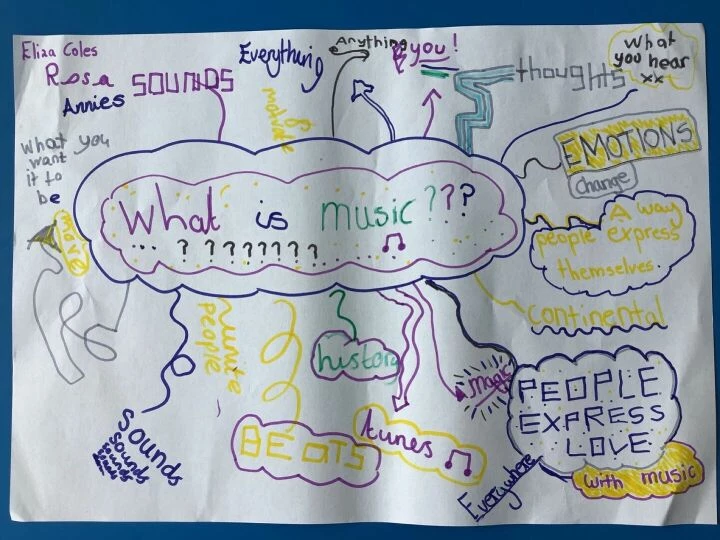 Eliza Coles
Rosa
Annies
SOUNDS
Everything
Anything
you!
thoughts
What
you hear
xx
EMOTIONS
change
What you
want
it to
be
move
What is music???
... ? ? ? ? ? ? ? ? .....
A way
people express
themselves.
continental
people
history
magic
PEOPLE
EXPRESS
LOVE
with music
sounds
sounds
sounds
sounds
sounds
BEATS
tunes
Everywhere